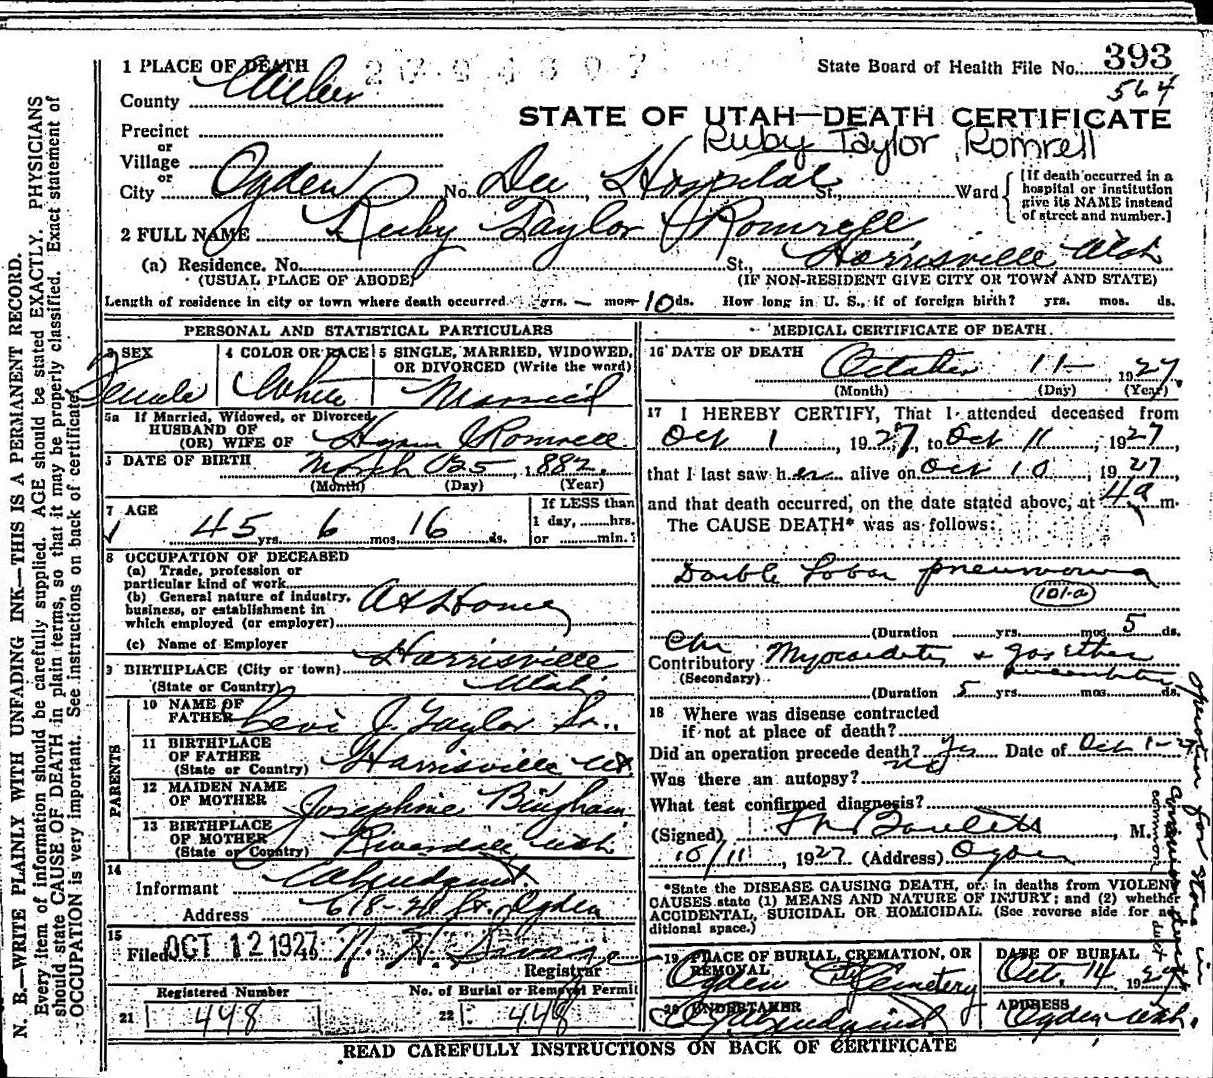 1 PLACE OF DEATH
State Board of Health File No. 393
564
County Weber
STATE OF UTAH—DEATH CERTIFICATE
Ruby Taylor Romrell
Precinct
or
Village
or
City Ogden No. Dee Hospital St., Ward
[If death occurred in a hospital or institution give its NAME instead of street and number.]
2 FULL NAME Ruby Taylor Romrell
(a) Residence. No. St., Harrisville Utah
(USUAL PLACE OF ABODE) (IF NON-RESIDENT GIVE CITY OR TOWN AND STATE)
Length of residence in city or town where death occurred yrs. – mos. 10 ds. How long in U. S., if of foreign birth? yrs. mos. ds.
PERSONAL AND STATISTICAL PARTICULARS
3 SEX
Female
4 COLOR OR RACE
White
5 SINGLE, MARRIED, WIDOWED,
OR DIVORCED (Write the word)
Married
5a If Married, Widowed, or Divorced
HUSBAND OF
(OR) WIFE OF Hyrum J Romrell
DATE OF BIRTH March 25, 1882.
(Month) (Day) (Year)
7 AGE
45 yrs. 6 mos. 16 ds.
If LESS than
1 day, hrs.
or min.
8 OCCUPATION OF DECEASED
(a) Trade, profession or
particular kind of work
(b) General nature of industry,
business, or establishment in
which employed (or employer)
At Home
(c) Name of Employer
9 BIRTHPLACE (City or town) Harrisville
(State or Country) Utah
PARENTS
10 NAME OF
FATHER Levi J. Taylor Sr.
11 BIRTHPLACE
OF FATHER
(State or Country) Harrisville Ut.
12 MAIDEN NAME
OF MOTHER Josephine Bingham
13 BIRTHPLACE
OF MOTHER
(State or Country) Riverdale Utah
14
Informant
Address 618-20 St. Ogden
15
Filed OCT 12 1927
Registrar
Registered Number
21 448
No. of Burial or Removal Permit
22 448
MEDICAL CERTIFICATE OF DEATH
16 DATE OF DEATH
October 11– 1927.
(Month) (Day) (Year)
17 I HEREBY CERTIFY, That I attended deceased from
Oct 1, 1927, to Oct 11, 1927,
that I last saw her alive on Oct 10, 1927
and that death occurred, on the date stated above, at 4 a m.
The CAUSE DEATH* was as follows:
Double Lobar pneumonia
101-a
(Duration yrs. mos. 5 ds.
Chr
Contributory Myocarditis &
(Secondary)
(Duration 5 yrs. mos. ds.
18 Where was disease contracted
if not at place of death?
Did an operation precede death? Yes Date of Oct 1-27
Was there an autopsy? no
What test confirmed diagnosis?
(Signed), M.
10/11, 1927 (Address) Ogden
*State the DISEASE CAUSING DEATH, or, in deaths from VIOLENT
CAUSES state (1) MEANS AND NATURE OF INJURY; and (2) whether
ACCIDENTAL, SUICIDAL OR HOMICIDAL. (See reverse side for ad
ditional space.)
operation for stone in common duct
19 PLACE OF BURIAL, CREMATION, OR
REMOVAL
Ogden City Cemetery
DATE OF BURIAL
Oct. 14 1927
20 UNDERTAKER
ADDRESS
Ogden Utah.
READ CAREFULLY INSTRUCTIONS ON BACK OF CERTIFICATE
N. B.—WRITE PLAINLY WITH UNFADING INK—THIS IS A PERMANENT RECORD.
Every item of information should be carefully supplied. AGE should be stated EXACTLY. PHYSICIANS
should state CAUSE OF DEATH in plain terms, so that it may be properly classified. Exact statement of
OCCUPATION is very important. See instructions on back of certificate.